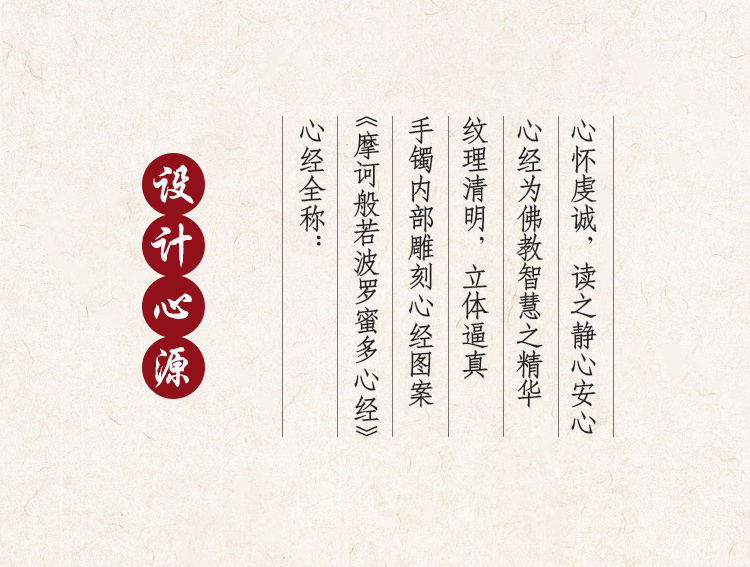 设计心源
心经全称：
《摩诃般若波罗蜜多心经》
手镯内部雕刻心经图案
纹理清明，立体逼真
心经为佛教智慧之精华
心怀虔诚，读之静心安心